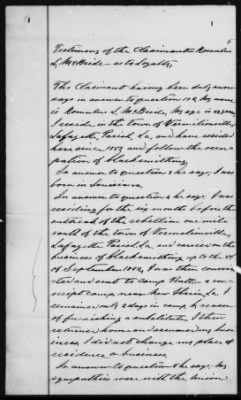 1
1
6
Testimony of the Claimant Romulus
L McBride - as to Loyalty
The Claimant having been duly sworn
says in answer to question 1st, My name
is Romulus L McBride, My age is years
I reside in the town of Vermilionville
Lafayette Parish, La, and have resided
here since 1853 and follow the occu-
pation of blacksmithing
In answer to question 2 he says; I was
born in Louisiana
In answer to question 3 he says; I was
residing for the six months before the
outbreak of the rebellion one mile
south of the town of Vermilionville
Lafayette Parish, La and carried on the
business of blacksmithing up to the
of September 1862, I was then conscri-
and sent to camp Pratt a con-
script camp near New Iberia, La I
remained only days in camp by reason
of furnishing a substitute. I then
returned home and resumed my busi-
ness, I did not change my place of
residence or business
In answer to question he says; My
sympathies were with the Union